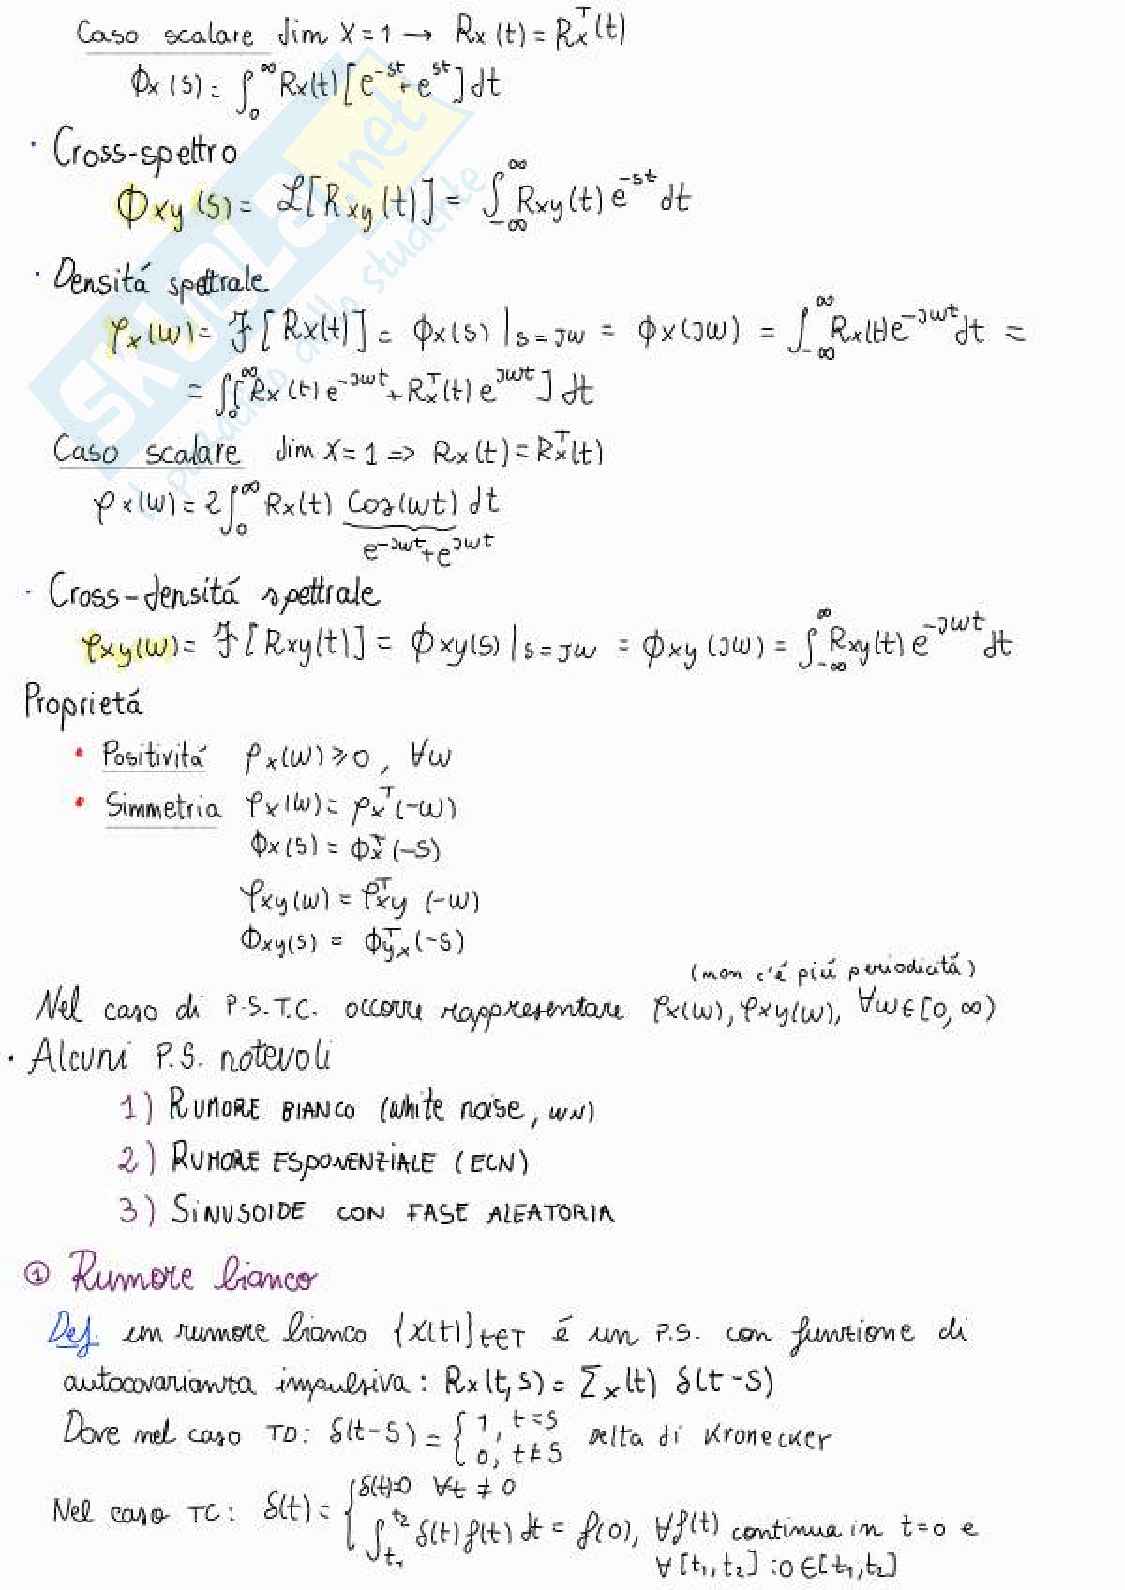 Caso scalare dim X = 1 → Rx(t) = Rx^T(t)
Φx(s) = ∫_0^∞ Rx(t)[e^-st + e^st] dt
· Cross-spettro
Φxy(s) = ℒ[Rxy(t)] = ∫_-∞^∞ Rxy(t) e^-st dt
· Densitá spettrale
φx(w) = ℱ[Rx(t)] = Φx(s)|s=jw = Φx(jw) = ∫_-∞^∞ Rx(t) e^-jwt dt =
= ∫_0^∞ [Rx(t) e^-jwt + Rx^T(t) e^jwt] dt
Caso scalare dim X = 1 => Rx(t) = Rx^T(t)
φx(w) = 2∫_0^∞ Rx(t) cos(wt) dt
e^-jwt + e^jwt
· Cross-densitá spettrale
φxy(w) = ℱ[Rxy(t)] = Φxy(s)|s=jw = Φxy(jw) = ∫_-∞^∞ Rxy(t) e^-jwt dt
Proprietá
• Positivitá φx(w) ≥ 0, ∀w
• Simmetria φx(w) = φx^T(-w)
Φx(s) = Φx^T(-s)
φxy(w) = φxy^T(-w)
Φxy(s) = Φyx^T(-s)
(non c'é piú periodicitá)
Nel caso di P.S.T.C. occorre rappresentare φx(w), φxy(w), ∀w∈[0,∞)
· Alcuni P.S. notevoli
1) RUMORE BIANCO (white noise, WN)
2) RUMORE ESPONENZIALE (ECN)
3) SINUSOIDE CON FASE ALEATORIA
① Rumore bianco
Def. un rumore bianco {x(t)}t∈T é un P.S. con funzione di
autocovarianza impulsiva: Rx(t,s) = Σx(t) δ(t-s)
Dove nel caso TD: δ(t-s) = { 1, t=s 0, t≠s Delta di Kronecker
Nel caso TC: δ(t) = { δ(t)=0 ∀t ≠ 0
∫_t1^t2 δ(t) f(t) dt = f(0), ∀f(t) continua in t=0 e
∀[t1,t2] : 0∈[t1,t2]
SKUOLA.net
il paradiso dello studente